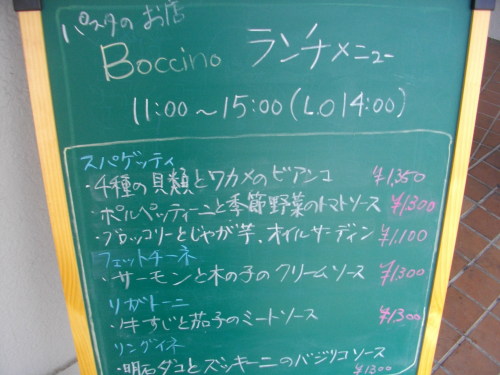 パスタのお店
Boccino ランチメニュー
11:00～15:00(L.O 14:00)
スパゲッティ
・4種の貝類とワカメのビアンコ ¥1,350
・ポルペッティーニと季節野菜のトマトソース ¥1,300
・ブロッコリーとじゃが芋、オイルサーディン ¥1,100
フェットチーネ
・サーモンと木の子のクリームソース ¥1,300
リガトーニ
・牛すじと茄子のミートソース ¥1,300
リングイネ
・明石ダコとズッキーニのバジリコソース ¥1300